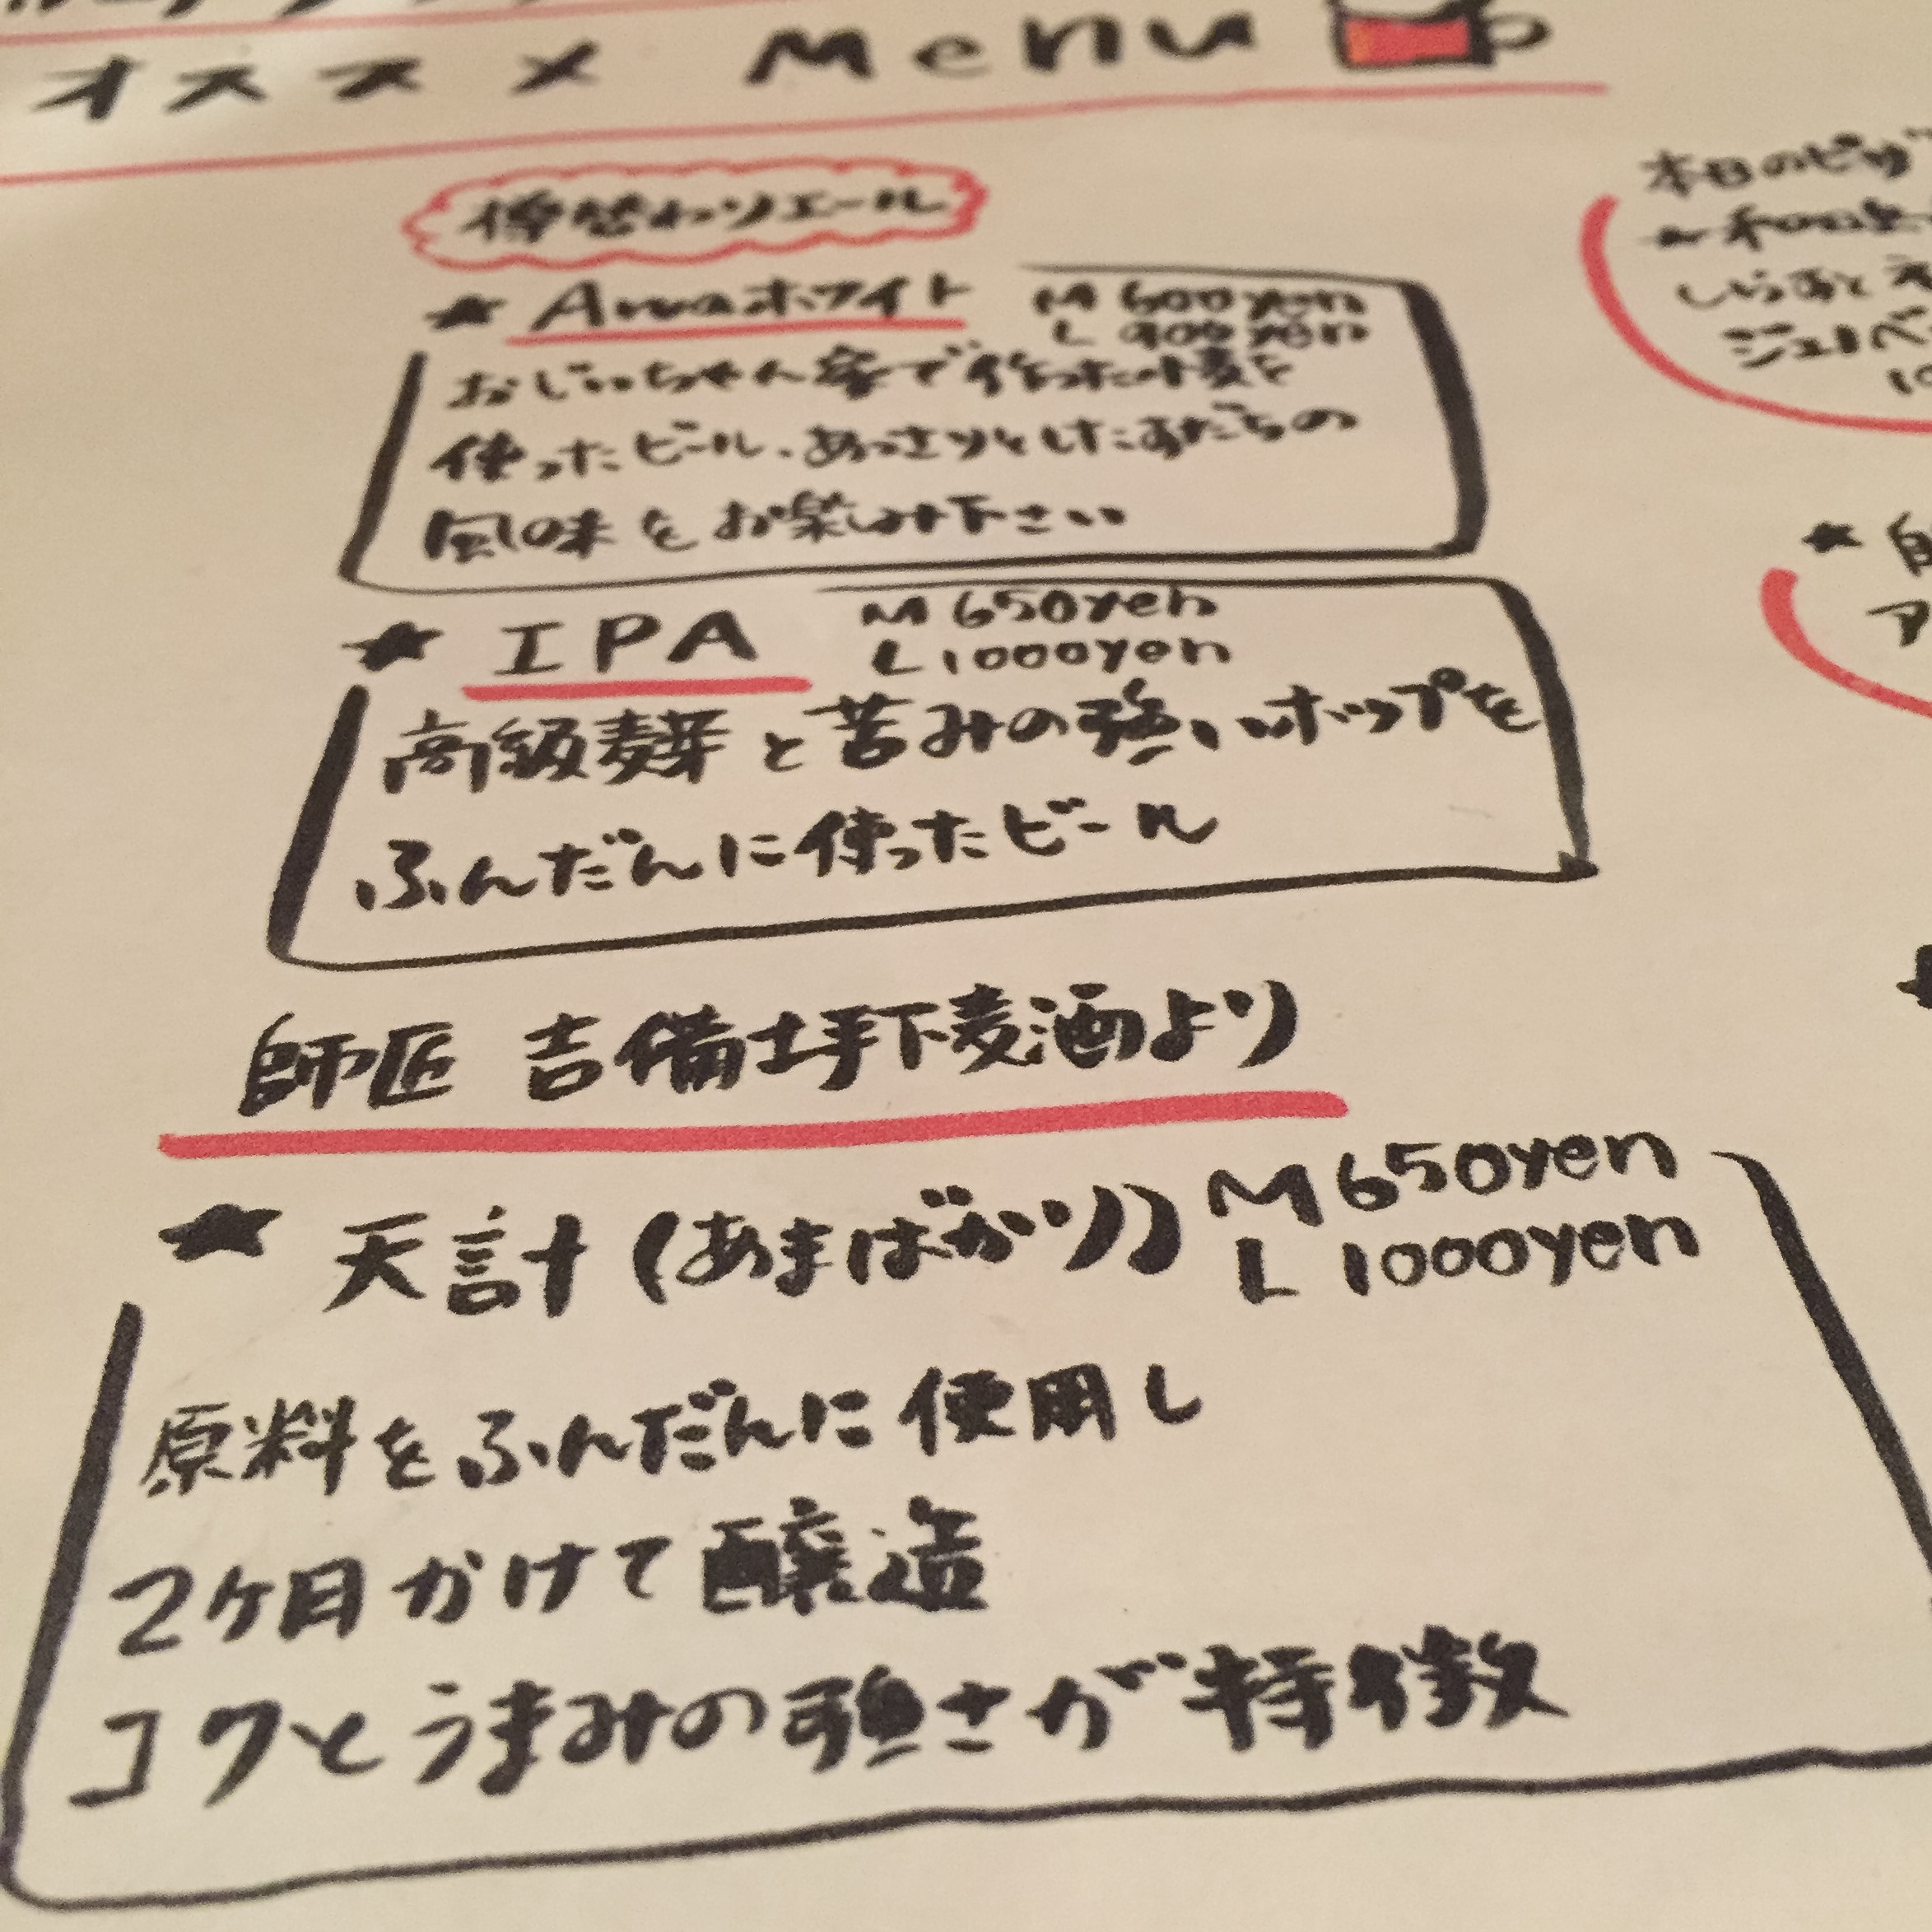 オススメ Menu
樽替わりエール
★ Awaホワイト M 600yen
L 900yen
おじいちゃん家で作った小麦を
使ったビール、あっさりとしたすだちの
風味をお楽しみ下さい
★ IPA M 650yen
L 1000yen
高級麦芽と苦みの強いホップを
ふんだんに使ったビール
師匠 吉備土手下麦酒より
★ 天計(あまばかり) M 650yen
L 1000yen
原料をふんだんに使用し
2ヶ月かけて醸造
コクとうまみの強さが特徴
本日のピザ
しらすと
★ 自
ア